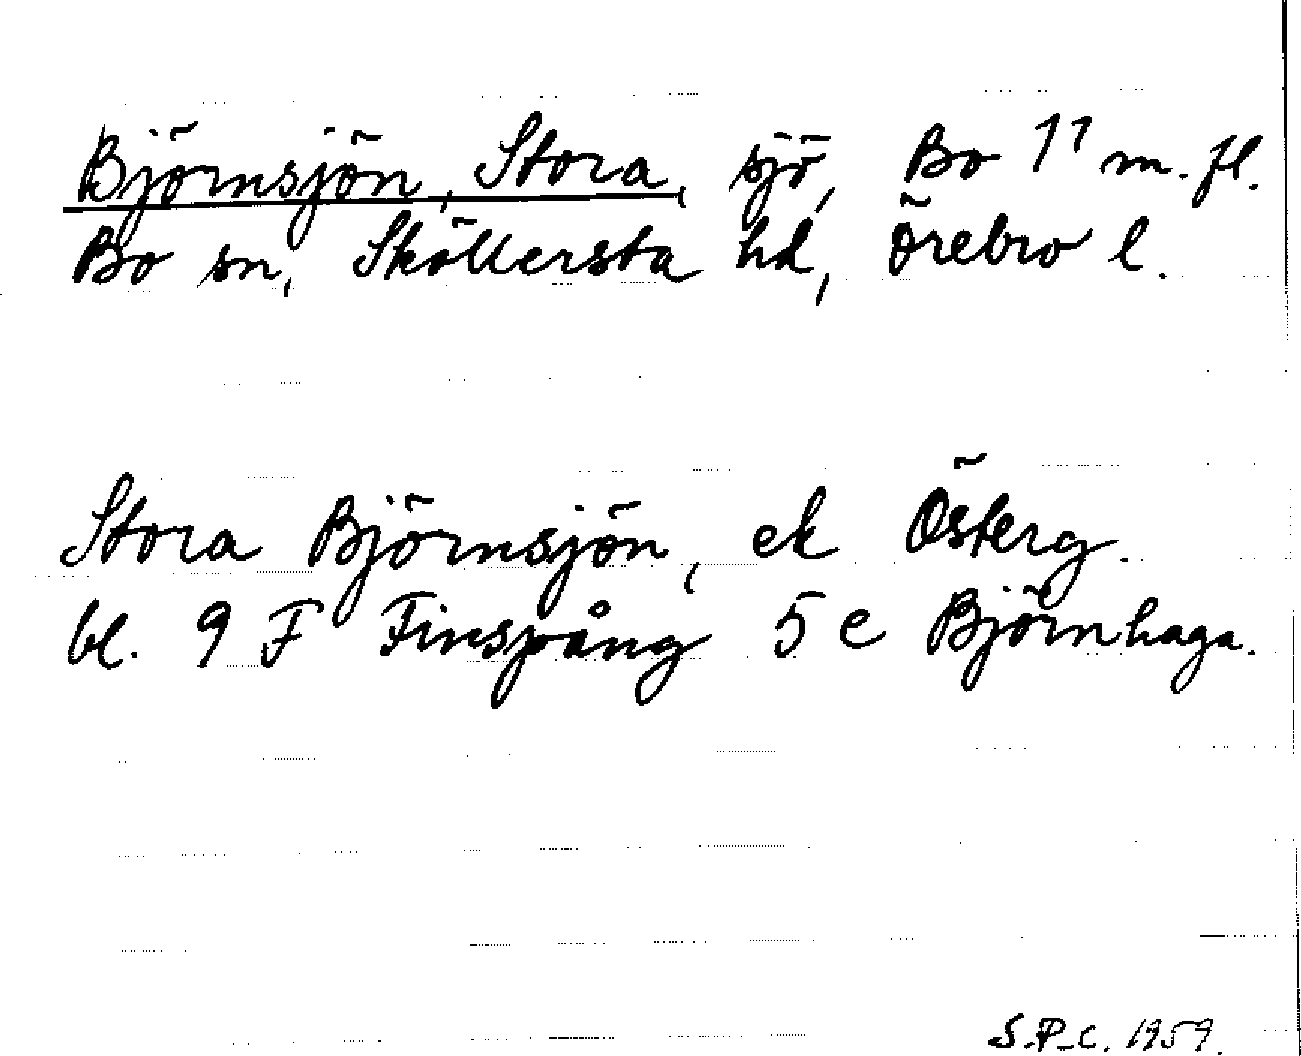 Björnsjön, Stora, sjö, Bo 1¹ m. fl.
Bo sn, Sköllersta hd, Örebro l.
Stora Björnsjön, ek Österg.
bl. 9 F Finspång 5 e Björnhaga.
S.P.C. 1959.